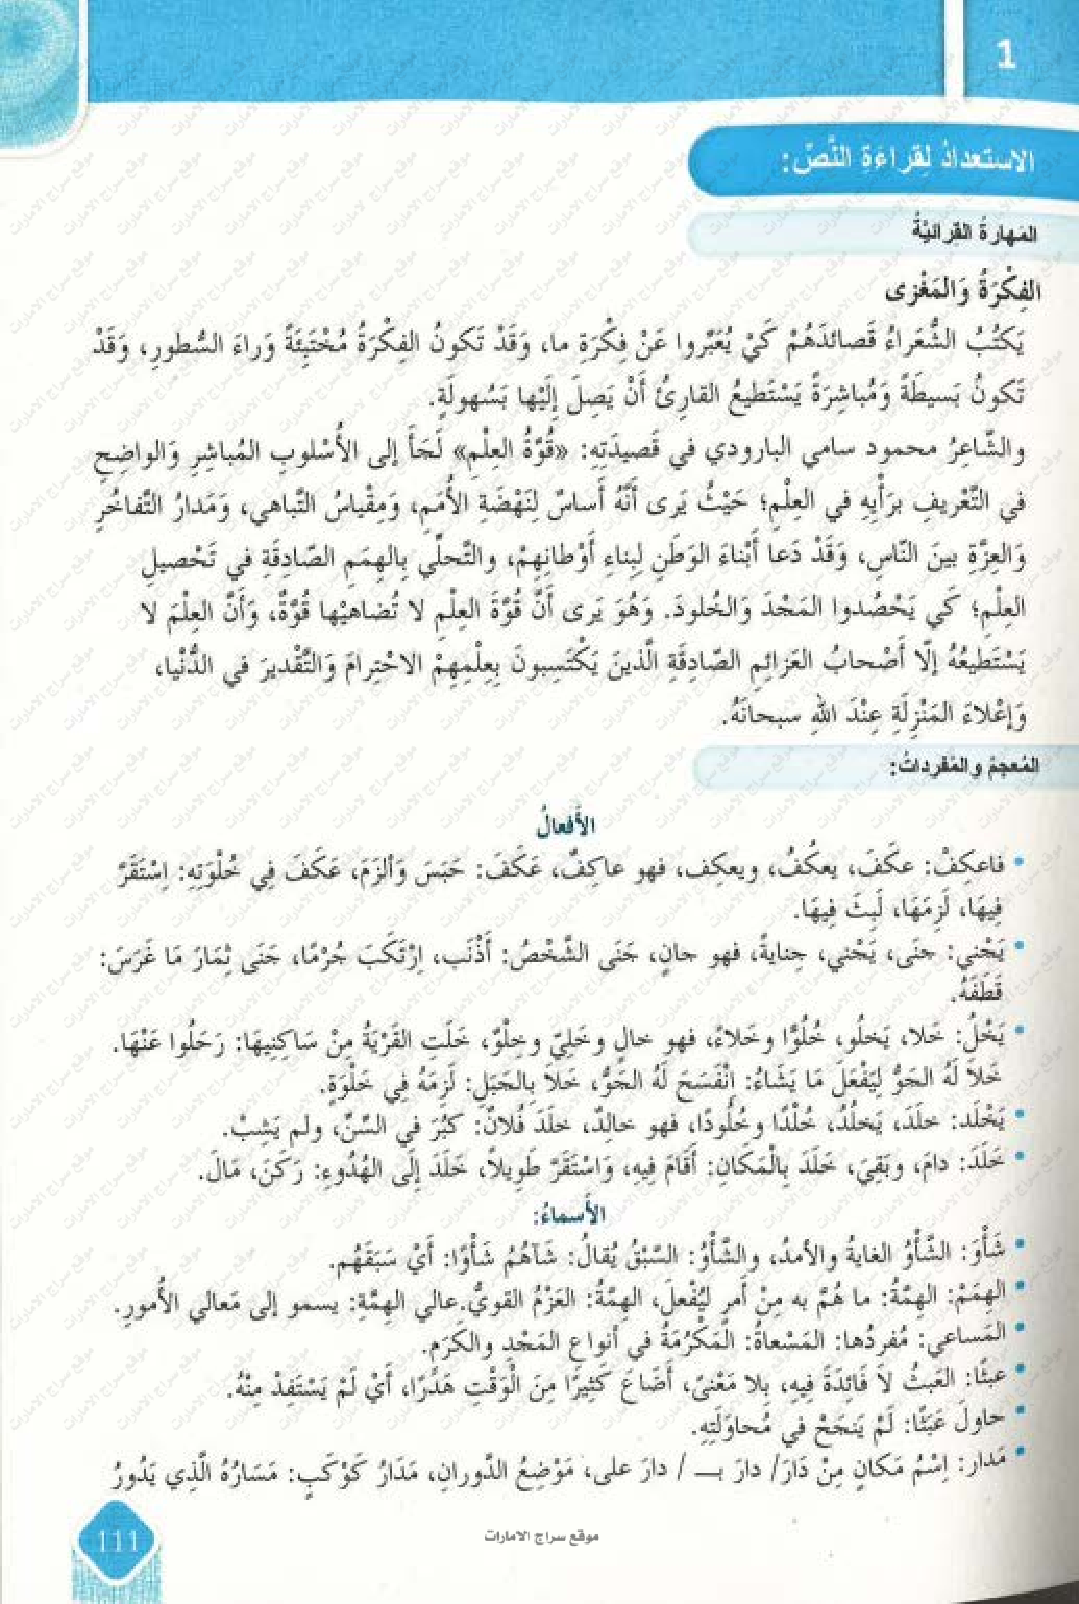 1
الاستعدادُ لِقراءَةِ النَّصِّ:
المَهارةُ القِرائيَّةُ
الفِكْرَةُ وَالمَغْزى
يَكتُبُ الشُّعَراءُ قَصائدَهُمْ كَيْ يُعَبِّروا عَنْ فِكْرَةٍ ما، وَقَدْ تَكونُ الفِكْرَةُ مُخْتَبِئَةً وَراءَ السُّطورِ، وَقَدْ
تَكونُ بَسيطَةً وَمُباشِرَةً يَسْتَطيعُ القارِئُ أَنْ يَصِلَ إِلَيْها بَسُهولَةٍ.
والشّاعِرُ محمود سامي البارودي في قَصيدَتِهِ: «قُوَّةُ العِلْمِ» لَجَأَ إلى الأُسْلوبِ المُباشِرِ وَالواضِحِ
في التَّعْريفِ برَأْيِهِ في العِلْمِ؛ حَيْثُ يَرى أَنَّهُ أَساسٌ لِنَهْضَةِ الأُمَمِ، وَمِقْياسُ التَّباهي، وَمَدارُ التَّفاخُرِ
وَالعِزَّةِ بينَ النّاسِ، وَقَدْ دَعا أَبْناءَ الوَطَنِ لِبِناءِ أَوْطانِهِمْ، والتَّحلّي بِالهِمَمِ الصّادِقَةِ في تَحْصيلِ
العِلْمِ؛ كَي يَحْصُدوا المَجْدَ وَالخُلودَ. وَهُوَ يَرى أَنَّ قُوَّةَ العِلْمِ لا تُضاهيْها قُوَّةٌ، وَأَنَّ العِلْمَ لا
يَسْتَطيعُهُ إلّا أَصْحابُ العَزائِمِ الصّادِقَةِ الَّذينَ يَكْتَسِبونَ بِعِلْمِهِمْ الاحْتِرامَ وَالتَّقْديرَ في الدُّنْيا،
وَإعْلاءَ المَنْزِلَةِ عِنْدَ اللهِ سبحانَهُ.
المُعجمُ والمُفرداتُ:
الأَفعالُ
• فاعكِفْ: عكَفَ، يعكُفُ، ويعكِف، فهو عاكِفٌ، عَكَفَ: حَبَسَ وَألزَمَ، عَكَفَ فِي خُلْوَتِهِ: اِسْتَقَرَّ
فِيهَا، لَزِمَهَا، لَبِثَ فِيهَا.
• يَجْنِي: جنَى، يَجْني، جِنايةً، فهو جانٍ، جَنَى الشَّخْصُ: أَذْنَب، اِرْتَكَبَ جُرْمًا، جَنَى ثِمَارَ مَا غَرَسَ:
قَطَفَهُ.
• يَخْلُ: خَلا، يَخلُو، خُلُوًّا وخَلاءً، فهو خالٍ وخَلِيّ وخِلْوٌ، خَلَتِ القَرْيَةُ مِنْ سَاكِنِيهَا: رَحَلُوا عَنْهَا.
خَلاَ لَهُ الجَوُّ لِيَفْعَلَ مَا يَشَاءُ: اِنْفَسَحَ لَهُ الجَوُّ، خَلاَ بِالجَبَلِ: لَزِمَهُ فِي خَلْوَةٍ.
• يَخْلَد: خلَدَ، يَخلُدُ، خُلْدًا وخُلُودًا، فهو خالِدٌ، خلَدَ فُلانٌ: كبُرَ في السِّنِّ، ولم يَشِبْ.
• خَلَدَ: دامَ، وبَقِيَ، خَلَدَ بِالْمَكَانِ: أَقَامَ فِيهِ، وَاسْتَقَرَّ طَوِيلاً، خَلَدَ إِلَى الهُدُوءِ: رَكَنَ، مَالَ.
الأَسماءُ:
• شَأْوَ: الشَّأْوُ الغايةُ والأمدُ، والشَّأْوُ: السَّبْقُ يُقالُ: شَآهُمُ شَأْوًا: أَيْ سَبَقَهُم.
• الهِمَمْ: الهِمَّةُ: ما هُمَّ به مِنْ أَمرٍ ليُفْعلَ، الهِمَّةُ: العَزْمُ القويُّ.عالي الهِمَّةِ: يسمو إلى مَعالي الأُمورِ.
• المَساعي: مُفردُها: المَسْعاةُ: الْمَكْرُمَةُ في أنواعِ المَجْدِ والكَرَمِ.
• عبثًا: العَبثُ لاَ فَائِدَةَ فِيهِ، بِلا مَعْنىً، أَضَاعَ كَثِيرًا مِنَ الْوَقْتِ هَدَرًا، أَيْ لَمْ يَسْتَفِدْ مِنْهُ.
• حاولَ عَبَثًا: لَمْ يَنجَحْ في مُحاوَلَتِهِ.
• مَدار: اِسْمُ مَكانٍ مِنْ دَارَ/ دارَ بـــ / دارَ على، مَوْضِعُ الدَّورانِ، مَدَارُ كَوْكَبٍ: مَسَارُهُ الَّذِي يَدُورُ
موقع سراج الامارات
111